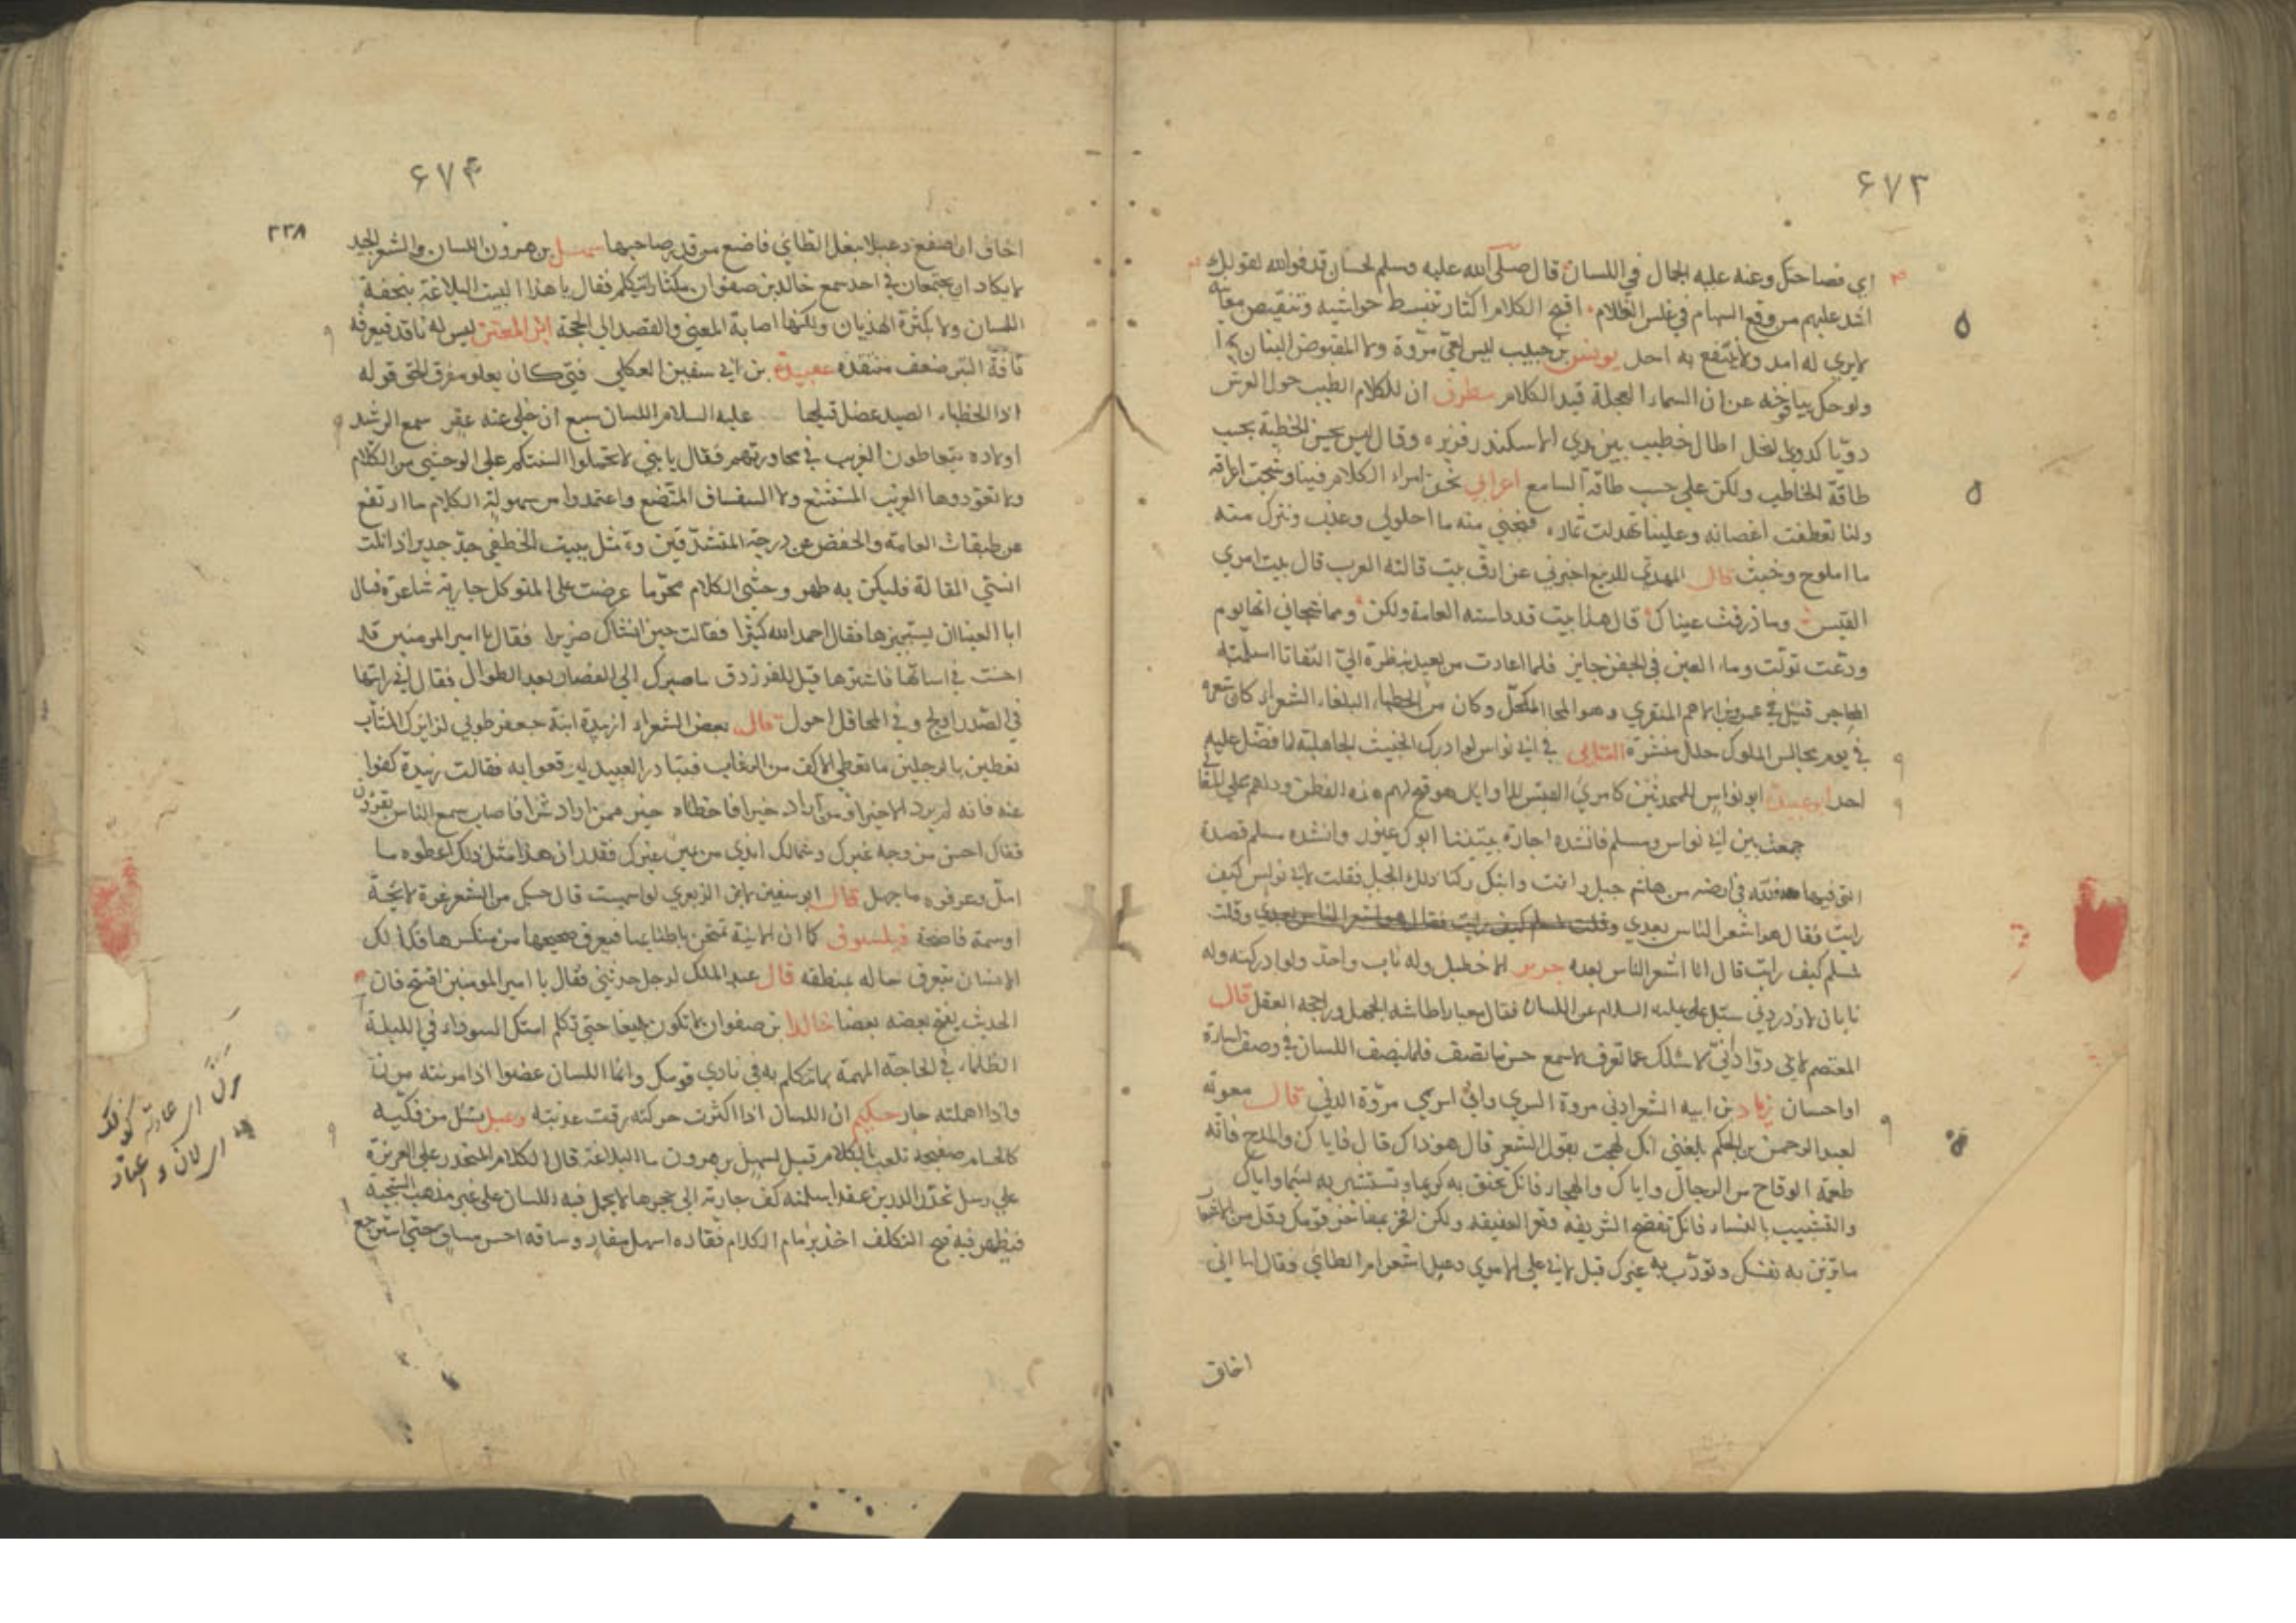 ۶۷۳
اي فصاحتك وعنه عليه الجمال في اللسان قال صلى الله عليه وسلم لحسان قد فوالله لقولك
اشد عليهم من وقع السهام في غلس الظلام اقبح الكلام اكثار تنبسط حواشيه وتنقبض معانيه
لا يري له امد ولا ينتفع به احد يونس بن حبيب ليس لعي مروة ولا لمنقوض البيان بها
ولو حك بيافوخه عنان السماء العجلة قيد الكلام مطرف ان للكلام الطيب حول العرش
دويا كدوي النحل اطال خطيب بين يدي الاسكندر فزبره وقال ليس تحسن الخطبة بحسب
طاقة الخاطب ولكن علي حسب طاقة السامع اعرابي نحن امراء الكلام فينا وشجت اعراقه
ولنا تعطفت اغصانه وعلينا تهدلت ثماره فنجني منه ما احلولي وعذب ونترك منه
ما املولح وخبث قال المهدي للربيع اخبرني عن ارق بيت قالته العرب قال بيت امري
القيس وما ذرفت عيناك قال هذا بيت قد داسته العامة ولكن ومما شجاني انها يوم
ودعت تولت وماء العين في الجفن حاير فلما اعادت من بعيد بنظرة الي التفاتا اسلمته
المحاجر قيل في عمرو بن الاهتم المنقري وهو المكحل وكان من الخطباء البلغاء الشعراء كان شعره
في يوم مجالس الملوك حلل منشرة العتابي في ابي نواس لو ادرك الخبيث الجاهلية لما فضل عليه
احد ابو عبيدة ابو نواس للمحدثين كامري القيس للاوايل هو فتح لهم هذه الفطن ودلهم علي المعاني
جمعت بين ابي نواس ومسلم فانشده اجارة بيتينا ابوك غيور وانشده مسلم قصيدة
التي فيها فلله في ارضه من هاشم جبل وانت وابنك ركنا ذلك الجبل فقلت لابي نواس كيف
رايت فقال هو اشعر الناس بعدي وقلت لمسلم كيف رايت فقال هو اشعر الناس بعدي وقلت
لمسلم كيف رايت قال انا اشعر الناس بعده جرير الاخطل وله ناب واحد ولو ادركته وله
نابان لازدردني سئل علي عليه السلام عن اللسان فقال معيار اطاشه الجهل وارجحه العقل قال
المعتصم لابن ابي دواد اني لا اسئلك عما تعرف لاسمع حسن ما تصف
او احسان زياد بن ابيه الشعر ادني مروة السري واني اسري مروة الدني قال معوية
لعبد الرحمن بن الحكم بلغني انك لهجت بقول الشعر قال هو ذاك قال فاياك والمدح فانه
طعمة الوقاح من الرجال واياك والهجاء فانك تحنق به كريما وتستثير به لئيما واياك
والتشبيب بالنساء فانك تفضح الشريفة وتعر العفيفة ولكن افخر بمفاخر قومك وقل من الامثال
ما تزين به نفسك وتودب به غيرك قيل لابي علي الاموي دعبل اشعر ام الطائي فقال اما اني
اخاف
۶۷۴
۳۳۸
اخاف ان اصفع دعبلا بنعل الطائي فاضع من قدر صاحبها سهل بن هرون اللسان والشعر الجيد
لا يكاد ان يجتمعان في احد سمع خالد بن صفوان مكثارا يتكلم فقال يا هذا ليست البلاغة بخفة
اللسان ولا بكثرة الهذيان ولكنها اصابة المعني والقصد الي الحجة ابن المعتز ليس له ناقد فيعرفه
نافة البز ضعف منتقده عبيدة بن ابي سفين العكلي فتي كان يعلو مفرق الحق قوله
اذا الخطباء الصيد عضل قيلها عليه السلام اللسان سبع ان خلي عنه عقر سمع الرشيد
اولاده يتعاطون الغريب في محاورتهم فقال يا بني لا تحملوا السنتكم علي الوحشي من الكلام
ولا تعودوها الغريب المستشنع ولا السفساف المتضع واعتمدوا من سهولة الكلام ما ارتفع
عن طبقات العامة وانخفض عن درجة المتشدقين وتمثل ببيت الخطفي جد جرير اذا نلت
انسي المقالة فليكن به ظهر وحشي الكلام محرما عرضت علي المتوكل جارية شاعرة فسال
ابا العيناء ان يستجيزها فقال احمد الله كثيرا فقالت حين انشاك ضريرا فقال يا امير المومنين قد
احسنت في اساتها فاشترها قيل للفرزدق ما صيرك الي القصار بعد الطوال فقال لاني رايتها
في الصدر اولج وفي المحافل اجول قال بعض الشعراء ازبيدة ابنة جعفر طوبي لزايرك المثاب
تعطين بالرجلين ما تعطي الاكف من الرغاب فتبادر العبيد ليوقعوا به فقالت زبيدة كفوا
عنه فانه لم يرد الا خيرا ومن اراد خيرا فاخطاه خير ممن اراد شرا فاصاب سمع الناس يقولون
فقال احسن من وجه غيرك وشمالك اندي من يمين غيرك فقدر ان هذا مثل ذلك اعطوه ما
امل وعرفوه ما جهل قال ابو سفين لابن الزبعري لو اسهبت قال حسبك من الشعر غرة لايحة
او سمة فاضحة فيلسوف كما ان الانية تمتحن باطنانها فيعرف صحيحها من منكسرها فكذلك
الانسان يتعرف حاله بمنطقه قال عبد الملك لرجل حدثني فقال يا امير المومنين افتتح فان
الحديث يفتح بعضه بعضا خالد بن صفوان لا تكون بليغا حتي تكلم امتك السوداء في الليلة
الظلماء في الحاجة المهمة بما تتكلم به في نادي قومك وانما اللسان عضو اذا مرنته مرن
واذا اهملته حار حكيم ان اللسان اذا اكثرت حركته رقت عذبته دعبل يسل من فكيه
كالحسام صفيحة تلعب بالكلام قيل لسهل بن هرون ما البلاغة قال الكلام المتحدر علي الغريزة
علي رسل تحدر الدر من عقد اسلمته كف جارية الي حجرها لا يحمل فيه اللسان علي غير مذهب السجية
فيظهر فيه قبح التكلف اخذ بزمام الكلام فقاده اسهل مقاد وساقه احسن مساق حتي استرجع